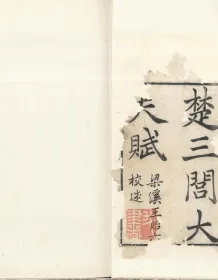 楚三閭大
夫賦
梁溪王
校述